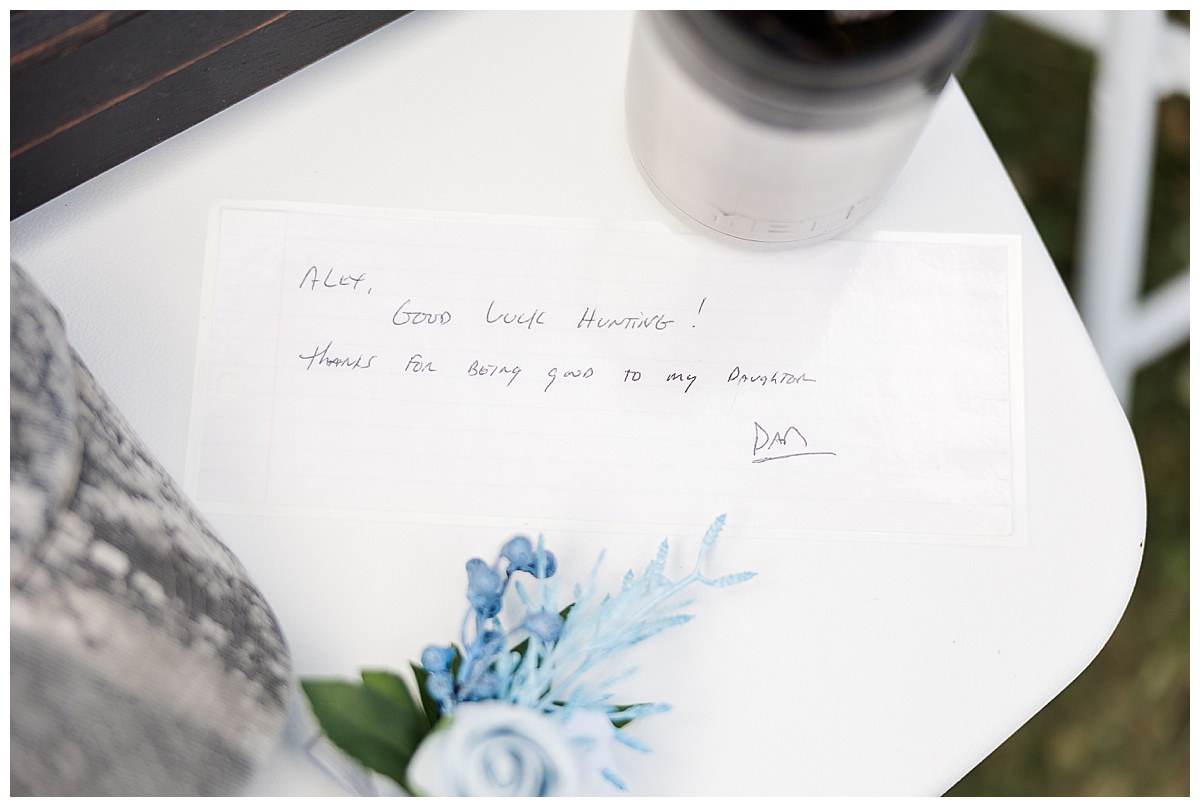 ALEX,
GOOD LUCK HUNTING!
THANKS FOR BEING GOOD TO MY DAUGHTER
DAN